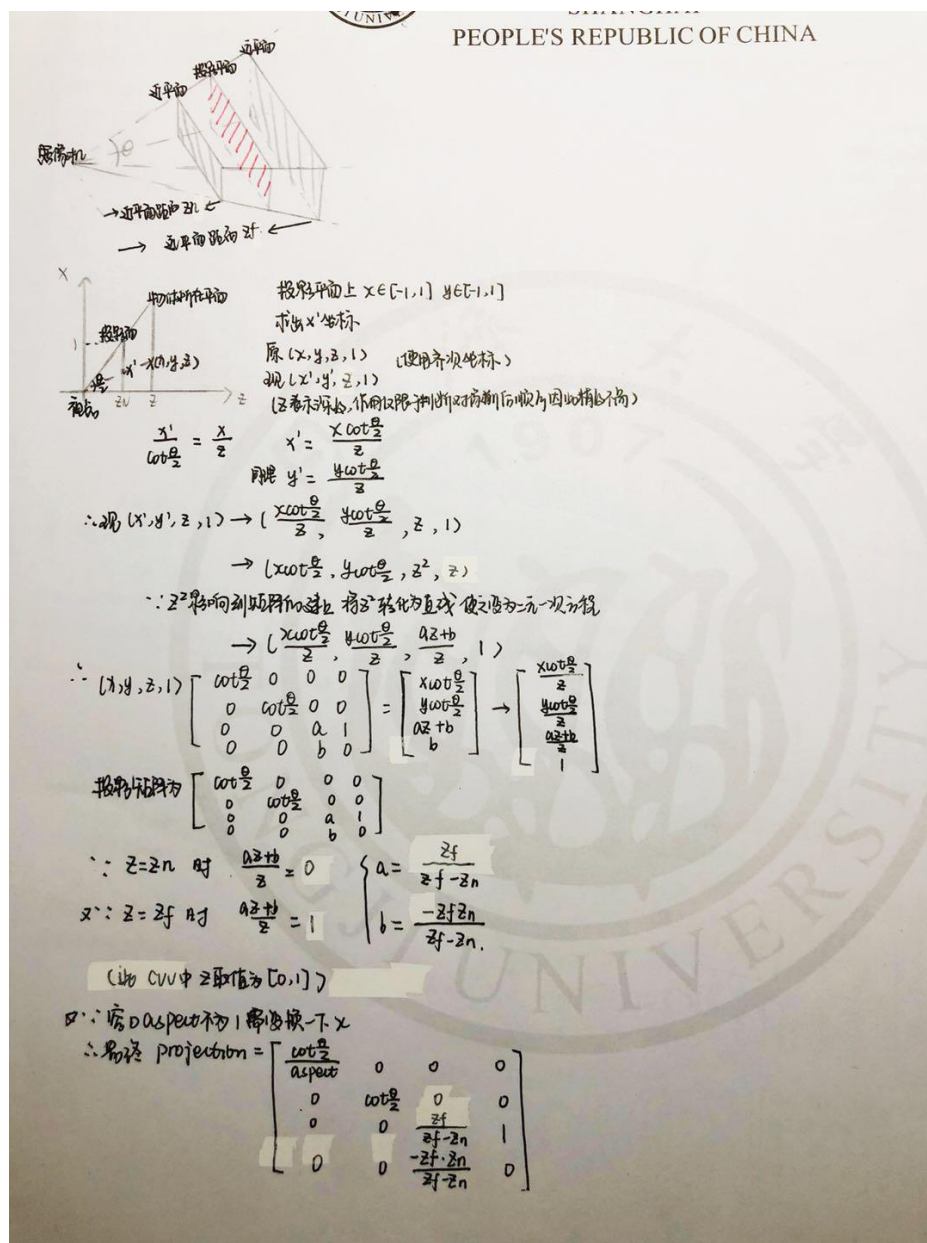 UNIV
SHANGHAI
PEOPLE'S REPUBLIC OF CHINA
远平面
投影平面
近平面
摄像机
θ
→近平面距离 Zn ←
→ 远平面距离 Zf ←
X
物体所在平面
投影面
1
x'
x(x,y,z)
视点
ZN Z
Z
投影平面上 x∈[-1,1] y∈[-1,1]
求出x'坐标
原 (x,y,z,1) (使用齐次坐标)
现 (x',y',z,1)
(z表示深度,作用仅限于判断对信前后顺序因此精度不高)
x'/cot θ/2 = x/z x' = x cot θ/2 / z
同理 y' = y cot θ/2 / z
∴现 (x',y',z,1) → (x cot θ/2 / z, y cot θ/2 / z, z, 1)
→ (x cot θ/2, y cot θ/2, z², z)
∵ z²影响到矩阵的建立 将z²转化为直线 使之变为二元一次方程
→ (x cot θ/2 / z, y cot θ/2 / z, az+b / z, 1)
∴ (x,y,z,1) [cot θ/2 0 0 0
0 cot θ/2 0 0
0 0 a 1
0 0 b 0] = [x cot θ/2
y cot θ/2
az+b
b] → [x cot θ/2 / z
y cot θ/2 / z
az+b / z
1]
投影矩阵为 [cot θ/2 0 0 0
0 cot θ/2 0 0
0 0 a 1
0 0 b 0]
∵ z=zn 时 az+b / z = 0 { a = zf / zf-zn
又∵ z=zf 时 az+b / z = 1 b = -zfzn / zf-zn.
(此 CVV中 z取值为[0,1])
又∵ 窗口aspect不为1 需变换一下x
∴ 最终 projection = [cot θ/2 / aspect 0 0 0
0 cot θ/2 0 0
0 0 zf / zf-zn 1
0 0 -zf·zn / zf-zn 0]
1907
TONGJI UNIVERSITY